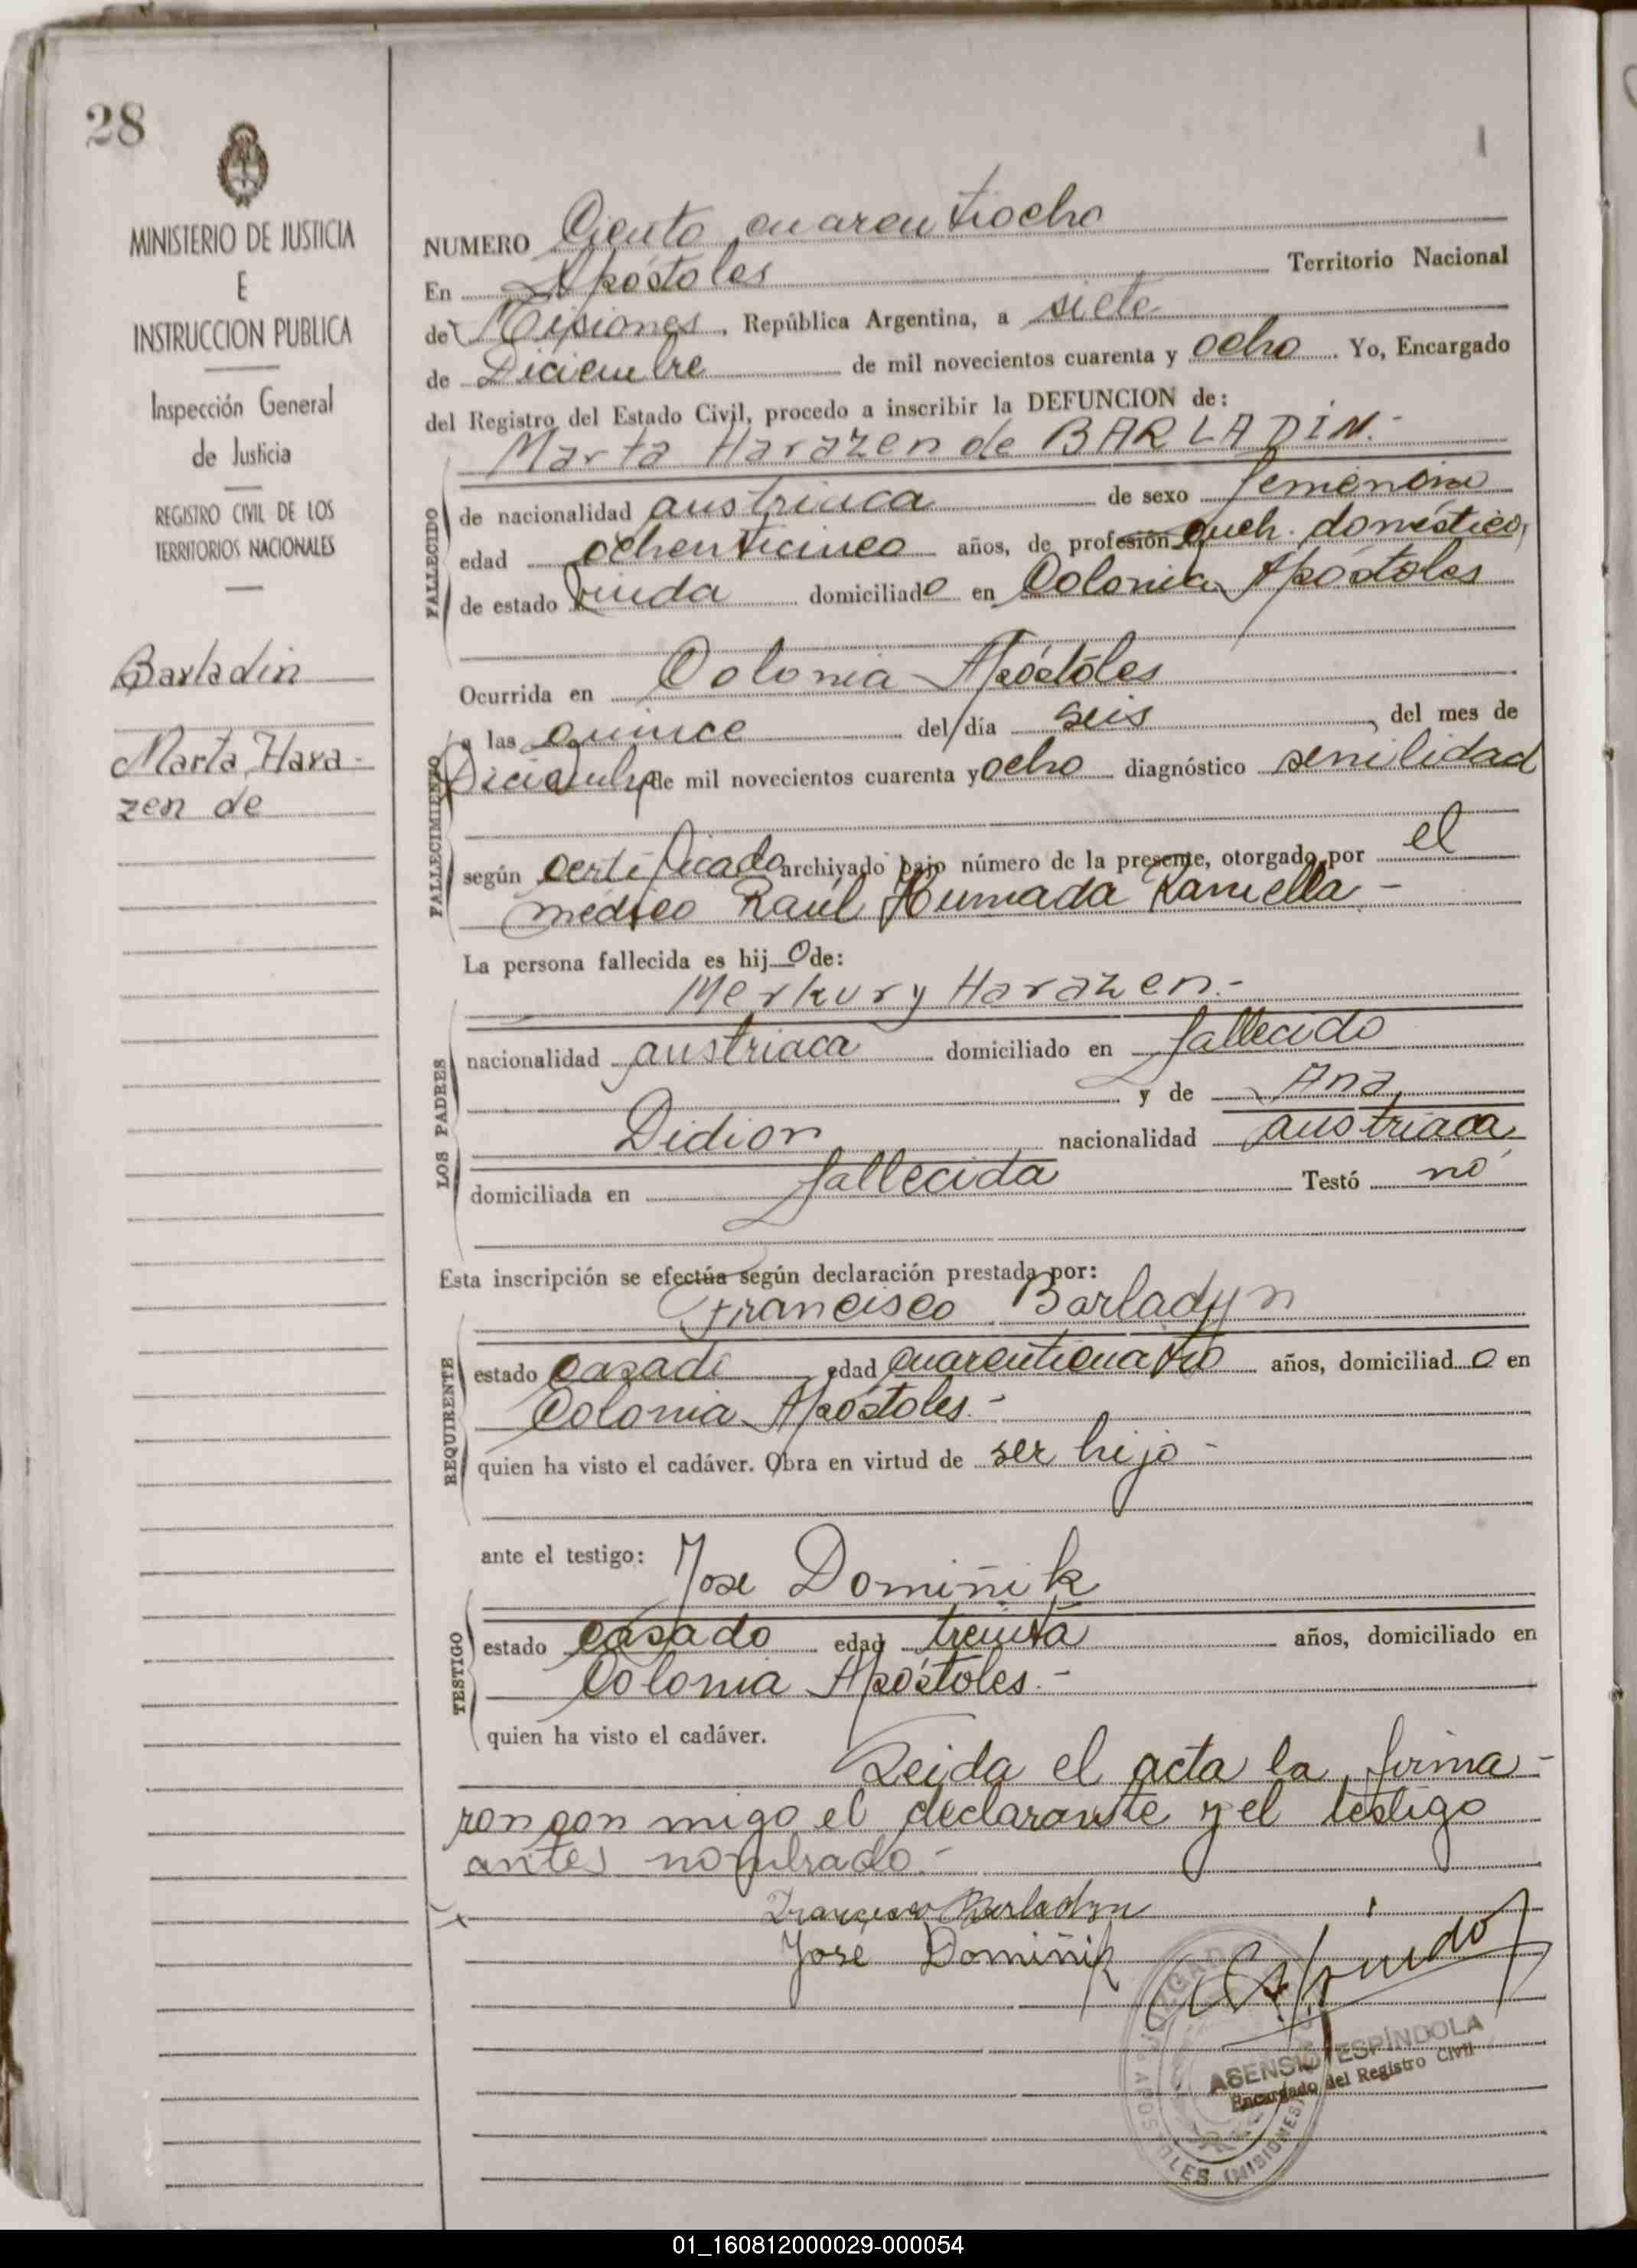 28
MINISTERIO DE JUSTICIA
E
INSTRUCCION PUBLICA
Inspección General
de Justicia
REGISTRO CIVIL DE LOS
TERRITORIOS NACIONALES
Barladin
Marta Hara-
zen de
NUMERO Ciento cuarentiocho
En Apóstoles Territorio Nacional
de Misiones, República Argentina, a siete
de Diciembre de mil novecientos cuarenta y ocho. Yo, Encargado
del Registro del Estado Civil, procedo a inscribir la DEFUNCION de:
Marta Harazen de BARLADIN.-
FALLECIDO
de nacionalidad austriaca de sexo femenino
edad ochenticinco años, de profesión queh. domésticos,
de estado viuda domiciliado en Colonia Apóstoles
FALLECIMIENTO
Ocurrida en Colonia Apóstoles
a las quince del día seis, del mes de
Diciembre de mil novecientos cuarenta y ocho diagnóstico senilidad
según certificado archivado bajo número de la presente, otorgado por el
médico Raúl Humada Ramella -
La persona fallecida es hijo de:
LOS PADRES
Merkury Harazen.-
nacionalidad austriaca domiciliado en fallecido
y de Ana
Didior nacionalidad austriaca
domiciliada en fallecida Testó no
Esta inscripción se efectúa según declaración prestada por:
REQUIRENTE
Francisco Barladyn
estado casado edad cuarenticuatro años, domiciliado en
Colonia Apóstoles.-
quien ha visto el cadáver. Obra en virtud de ser hijo -
ante el testigo: Jose Domiñik
TESTIGO
estado casado edad treinta años, domiciliado en
Colonia Apóstoles.-
quien ha visto el cadáver.
Leida el acta la firma-
ron con migo el declarante y el testigo
antes nombrado.-
Francisco Barladyn
José Domiñik
ASENSIO ESPÍNDOLA
Encargado del Registro Civil
APOSTOLES (MISIONES)
01_160812000029-000054